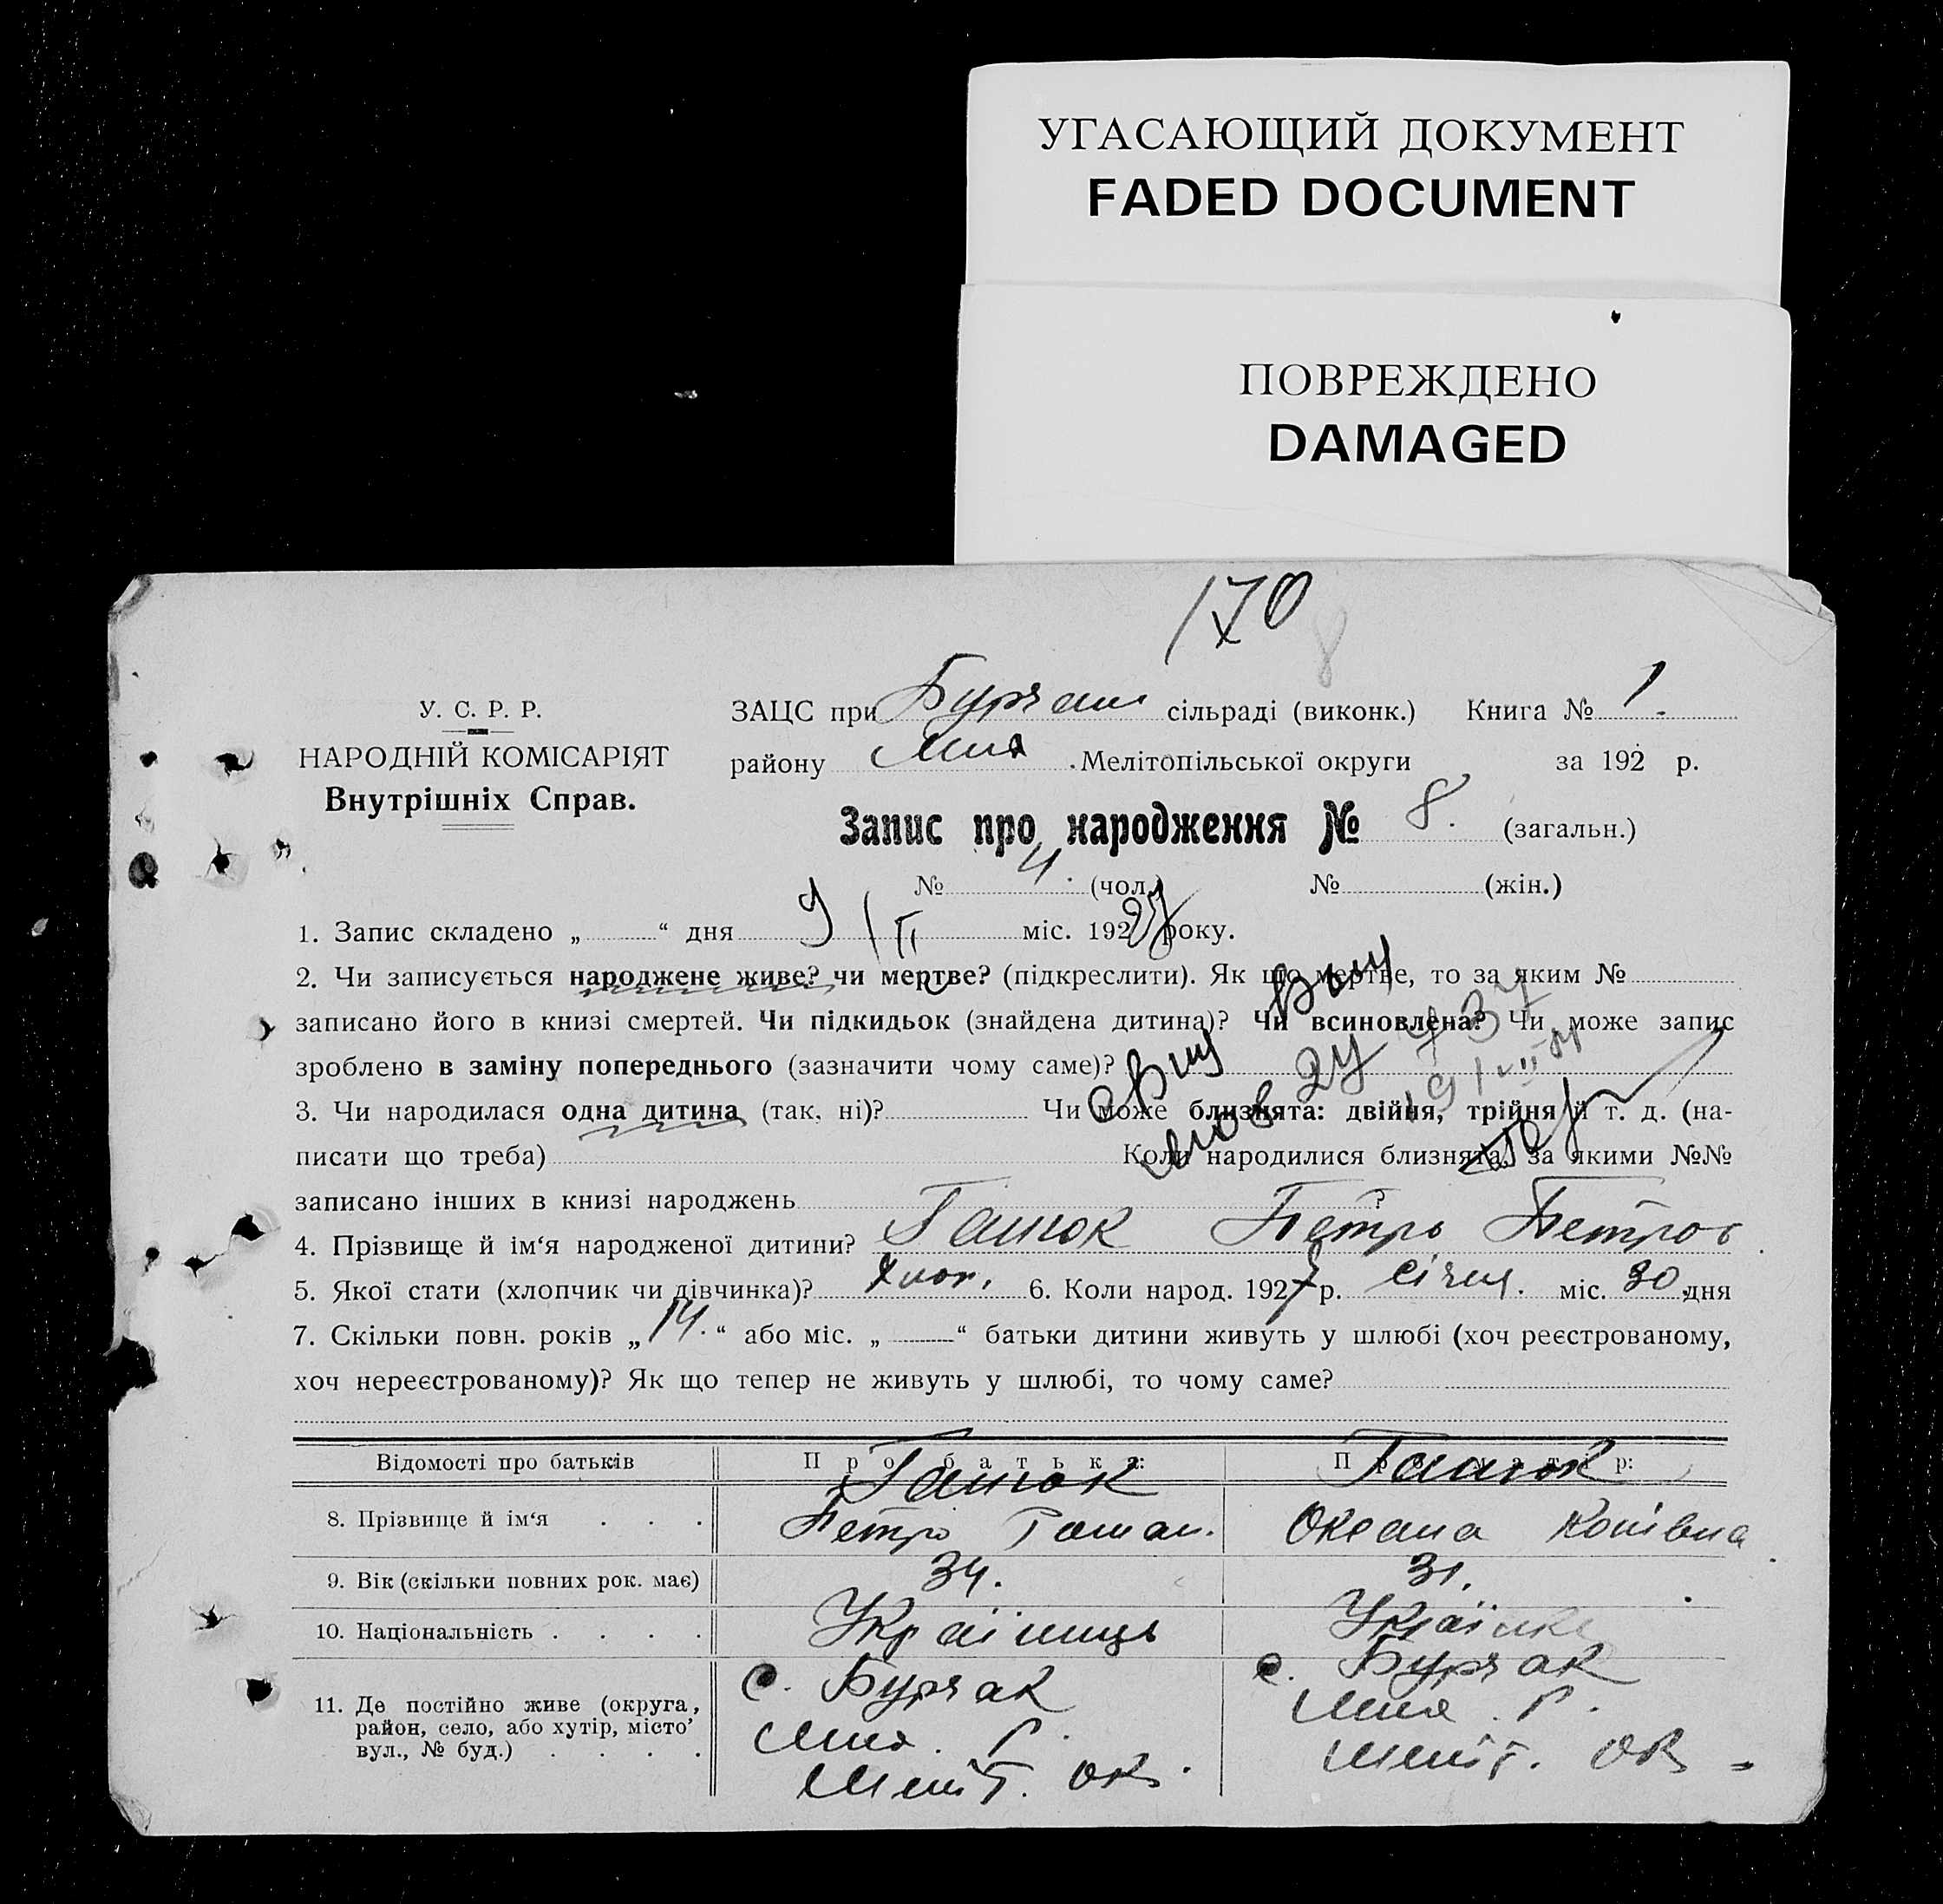 УГАСАЮЩИЙ ДОКУМЕНТ
FADED DOCUMENT
ПОВРЕЖДЕНО
DAMAGED
170
8
У. С. Р. Р.
НАРОДНІЙ КОМІСАРІЯТ
Внутрішніх Справ.
ЗАЦС при сільраді (виконк.) Книга № 1.
району Мелітопільської округи за 192 р.
Запис про народження № 8. (загальн.)
№ 4. (чол.) № (жін.)
1. Запис складено „ “ дня 9/II міс. 1927 року.
2. Чи записується народжене живе? чи мертве? (підкреслити). Як що мертве, то за яким №
записано його в книзі смертей. Чи підкидьок (знайдена дитина)? Чи всиновлена? Чи може запис
зроблено в заміну попереднього (зазначити чому саме)?
3. Чи народилася одна дитина (так, ні)? Чи може близнята: двійня, трійня й т. д. (на-
писати що треба) Коли народилися близнята, за якими №№
записано інших в книзі народжень ?
4. Прізвище й ім‘я народженої дитини? Петро Петров
5. Якої стати (хлопчик чи дівчинка)? хлоп. 6. Коли народ. 1927 р. січня. міс. 30 дня
7. Скільки повн. років „ 14. “ або міс. „ “ батьки дитини живуть у шлюбі (хоч реєстрованому,
хоч нереєстрованому)? Як що тепер не живуть у шлюбі, то чому саме?
Відомості про батьків Про батька: Про матір:
8. Прізвище й ім‘я . . . Петро
9. Вік (скільки повних рок. має) 34. 31.
10. Національність . . . . Українець Українка
11. Де постійно живе (округа, с. Бурчак с. Бурчак
район, село, або хутір, місто’ р. р.
вул., № буд.) . . . . Меліт. ок. Меліт. ок